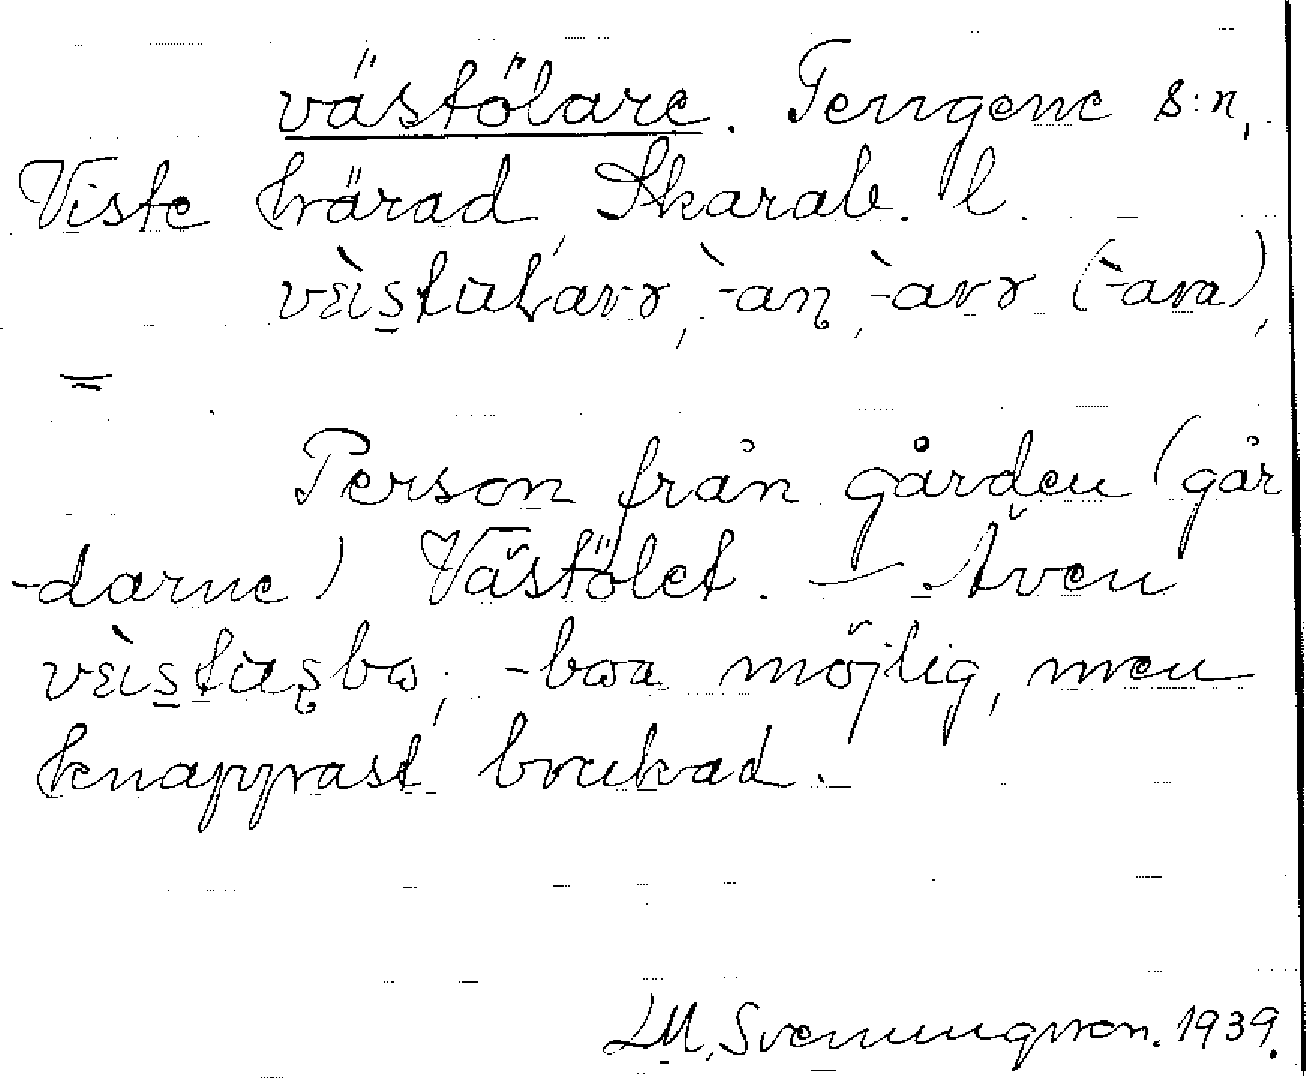 västölare. Tengene s:n,
Viste härad, Skarab. l.
-an, -avr (-ava),
=
Person från gården (går
-darne) Västölet. — Även
-boa möjlig, men
knappast brukad.
LM. Svenungsson. 1939.